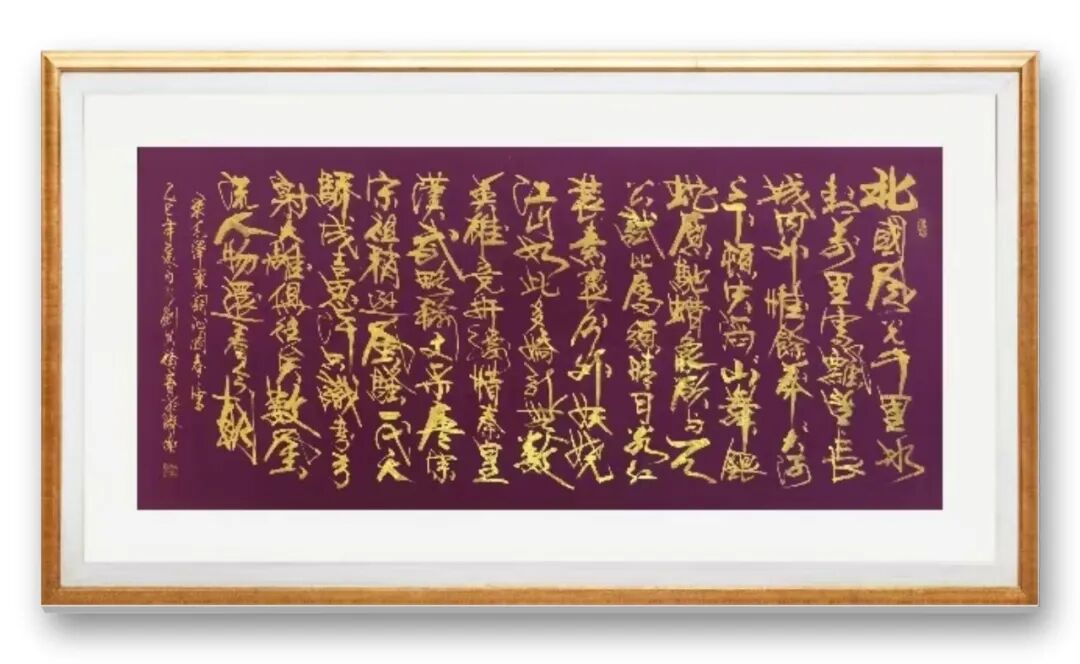 北國風光千里冰
封萬里雪飄望長
城内外惟餘莽々大河
上下頓失滔々山舞銀
蛇原馳蠟象欲与天
公試比高須晴日看紅
裝素裹分外妖嬈
江山如此多嬌引無數
英雄竞折腰惜秦皇
漢武略輸文采唐宗
宋祖稍遜風騷一代天
驕成吉思汗只識彎弓
射大雕俱往矣數風
流人物還看今朝
毛澤東詞沁園春雪
乙巳年